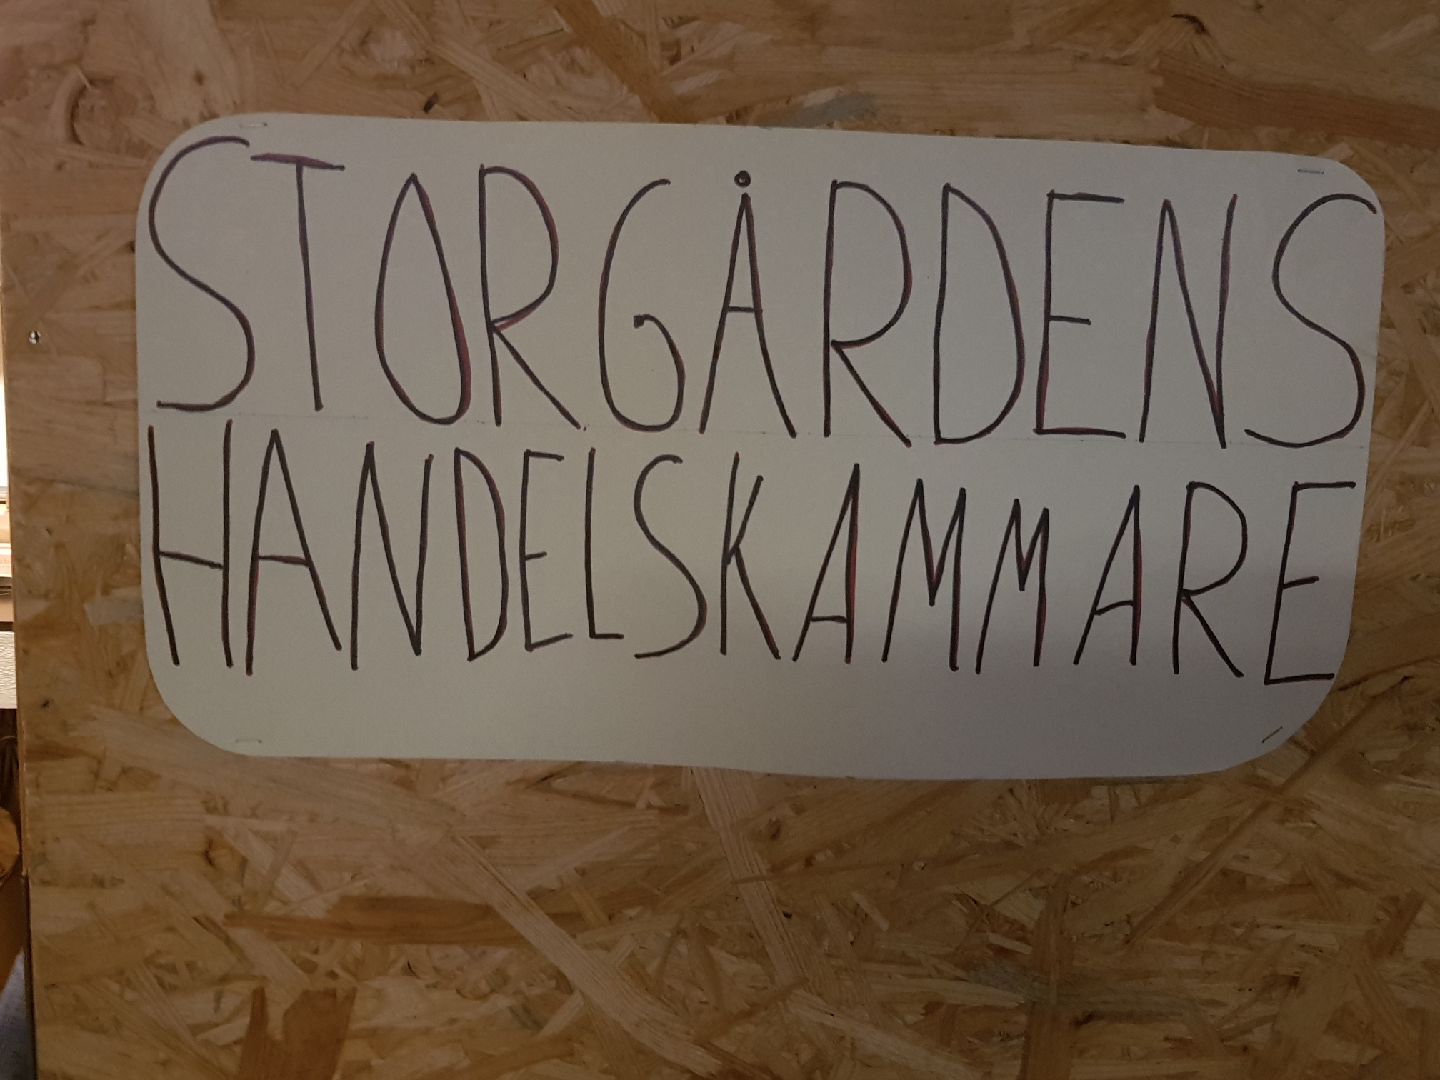 STORGÅRDENS
HANDELSKAMMARE